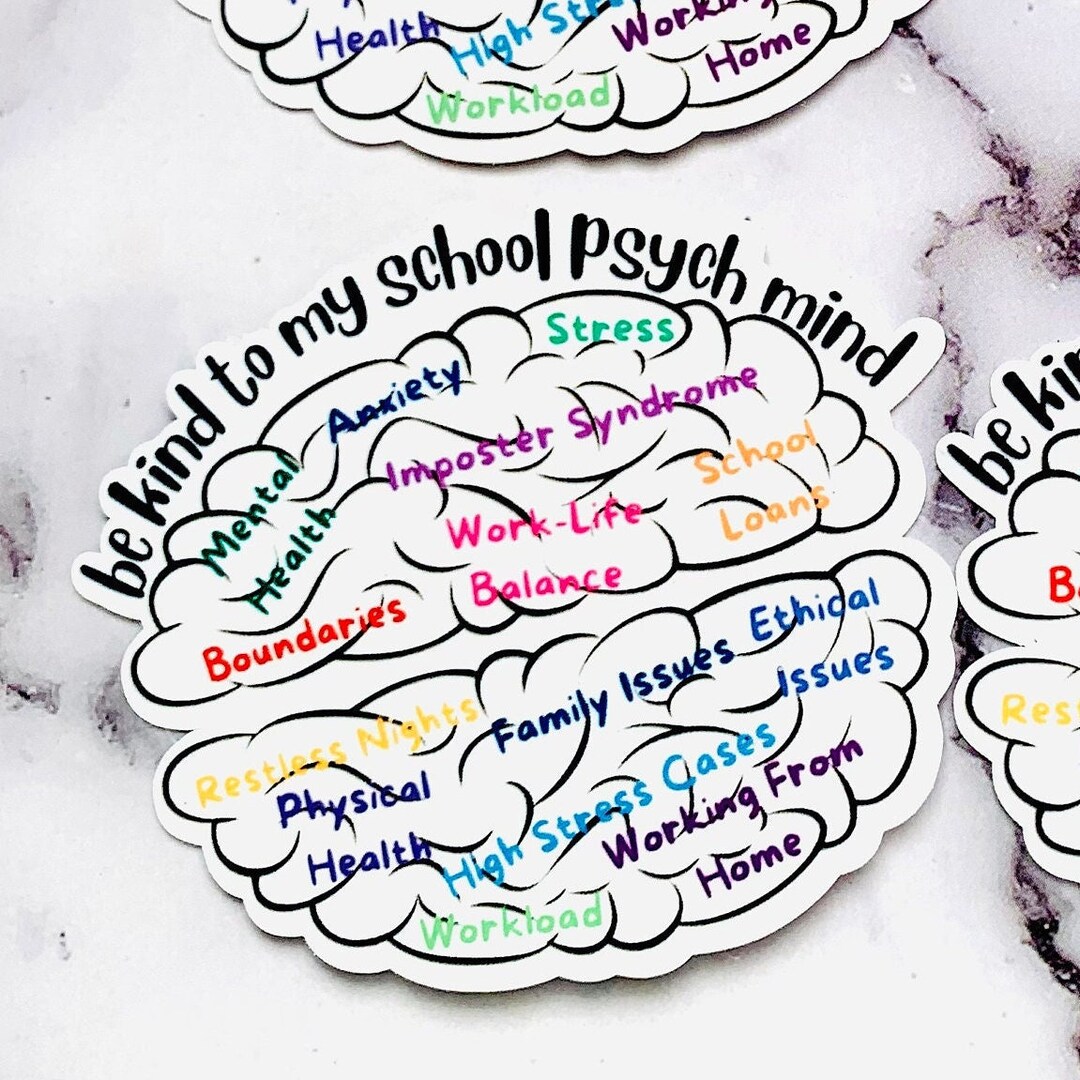 Health
High Stre
Working
Home
Workload
be kind to my school psych mind
Stress
Anxiety
Imposter Syndrome
School
Loans
Mental
Health
Work-Life
Balance
Boundaries
Ethical
Issues
Family Issues
Restless Nights
Physical
Health
High Stress Cases
Working From
Home
Workload
be kin
B
Res